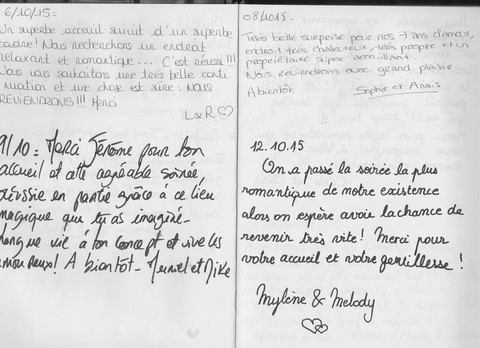 6/10/15 :
Un superbe accueil suivit d'un superbe
cadre! Nous recherchions un endroit
relaxant et romantique... C'est réussi!!!
Nous vous souhaitons une très belle conti
nuation et une chose est sûre : NOUS
REVIENDRONS!!! Merci
L & R
9/10 : Merci Jérôme pour ton
accueil et cette agréable soirée,
réussie en partie grâce à ce lieu
magique que tu as imaginé.
Longue vie à ton concept et vive les
amoureux! A bientôt - Muriel et Mike
08/10/15 -
Très belle surprise pour nos 7 ans d'amour,
endroit très chaleureux, très propre et un
propriétaire super accueillant.
Nous reviendrons avec grand plaisir.
A bientôt.
Sophie et Anaïs
12.10.15
On a passé la soirée la plus
romantique de notre existence
alors on espère avoir la chance de
revenir très vite! Merci pour
votre accueil et votre gentillesse!
Mylène & Melody